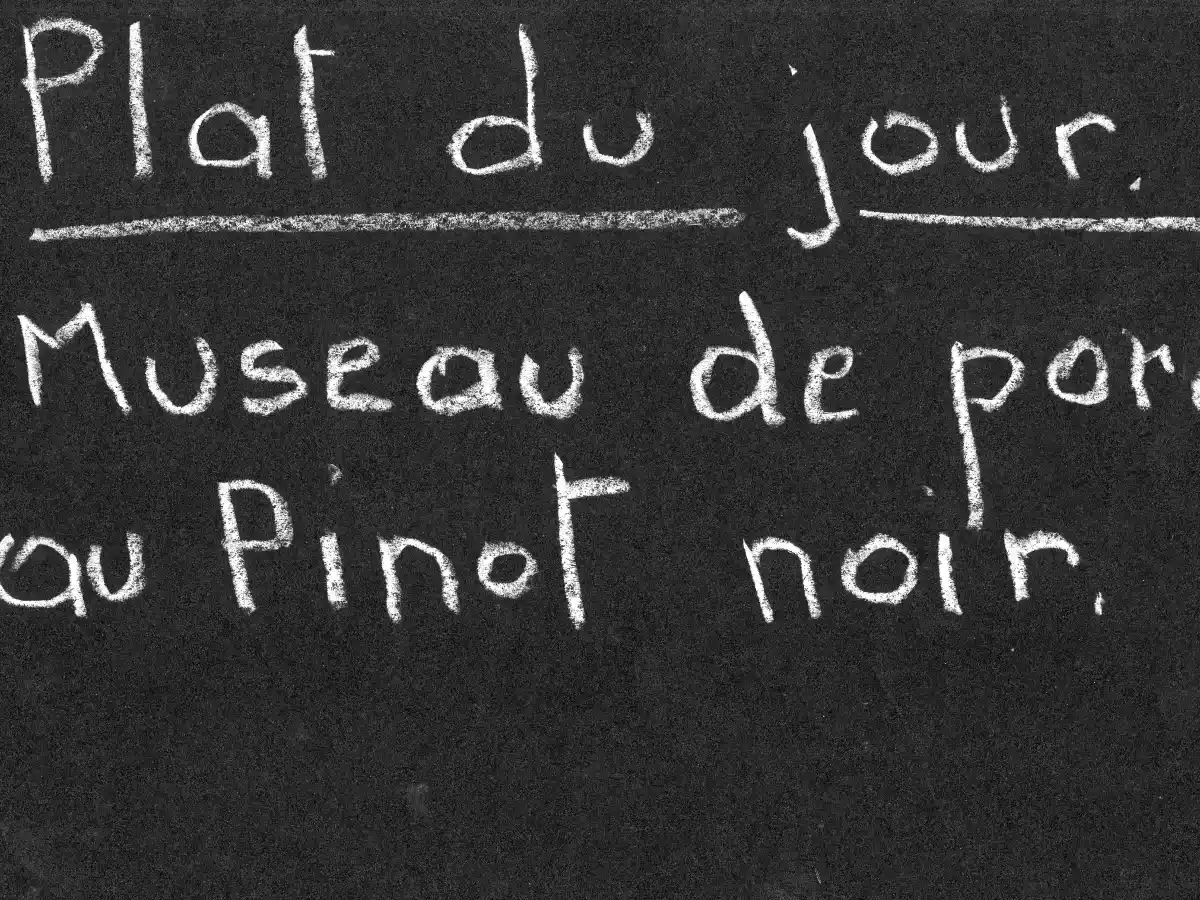 Plat du jour.
Museau de porc
au Pinot noir.